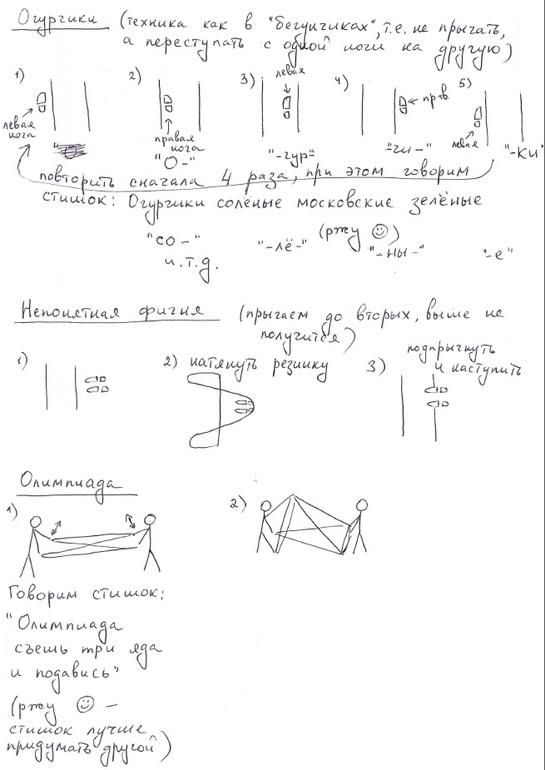 Огурчики (техника как в "бегунчиках", т.е. не прыгать,
а переступать с одной ноги на другую)
1) 2) 3) левая 4) 5)
левая нога
правая нога
← прав.
левая
"О-" "-гур-" "-чи-" "-ки"
повторить сначала 4 раза, при этом говорим
стишок: Огурчики солёные московские зелёные
(ржу ☺)
"со-" "-лё-" "-ны-" "-е"
и.т.д.
Непонятная фигня (прыгаем до вторых, выше не
получится)
1) 2) натянуть резинку 3) подпрыгнуть
и наступить
Олимпиада
1) 2)
Говорим стишок:
"Олимпиада
съешь три яда
и подавись"
(ржу ☺ –
стишок лучше
придумать другой)